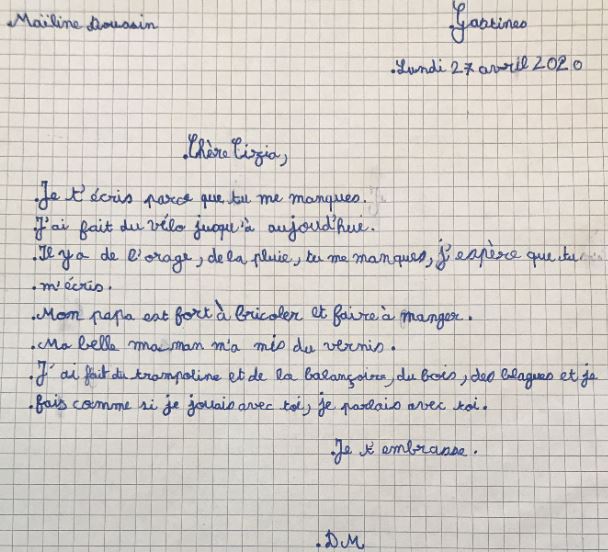 Maïline Doussin
Gastines
.Lundi 27 avril 2020
.Chère Cizia,
.Je t'écris parce que tu me manques.
.J'ai fait du vélo juqu'à aujoud'hui.
.Il y a de l'orage, de la pluie, tu me manques, j'espère que tu
.m'écris.
.Mon papa est fort à bricoler et faire à manger.
.Ma belle maman m'a mis du vernis.
.J'ai fait du trampoline et de la balançoire, du bois, des blagues et je
.fais comme si je jouais avec toi, je parlais avec toi.
.Je t'embrasse.
.DM